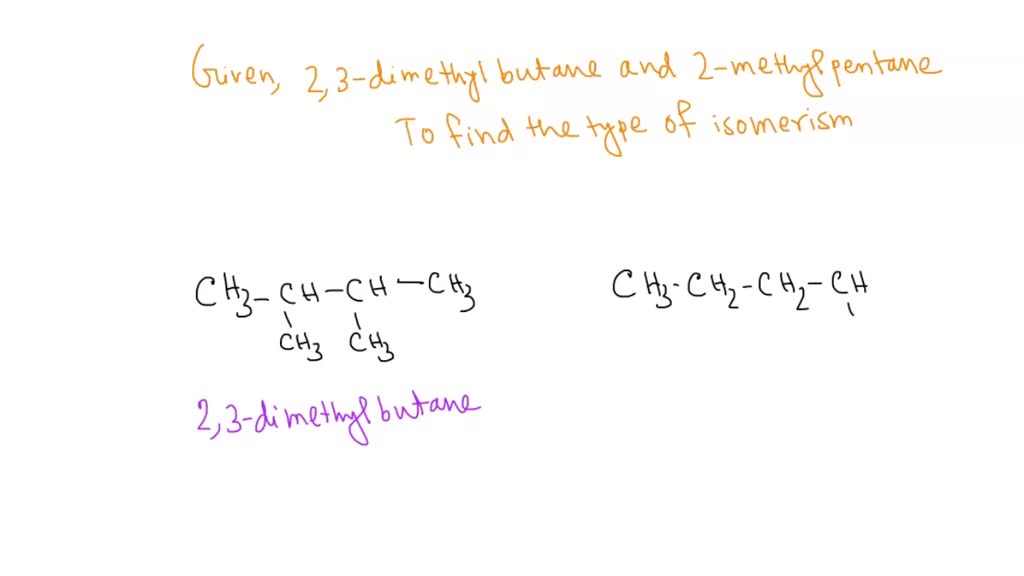 Given, 2,3-dimethyl butane and 2-methyl pentane
To find the type of isomerism
CH3-CH-CH-CH3
CH3 CH3
CH3-CH2-CH2-CH
2,3-dimethyl butane